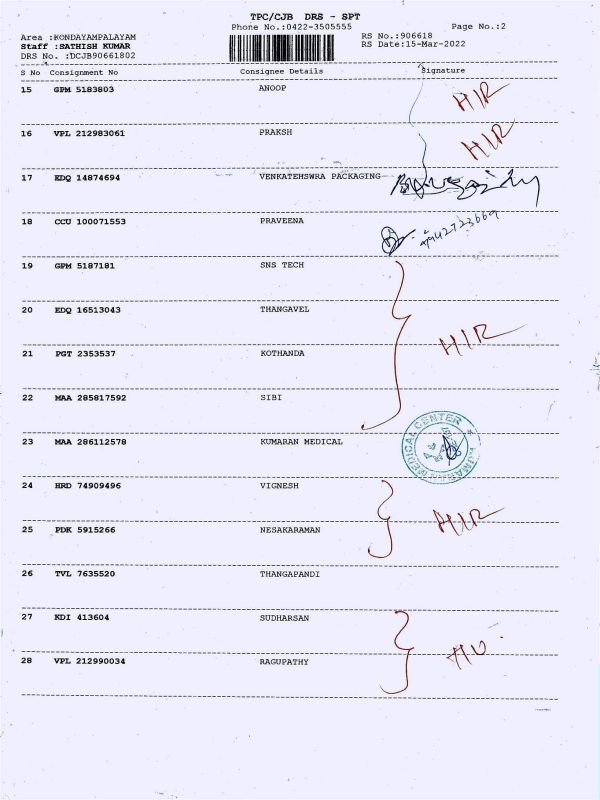 TPC/CJB DRS - SPT
Phone No.:0422-3505555 Page No.:2
Area :KONDAYAMPALAYAM RS No.:906618
Staff :SATHISH KUMAR RS Date:15-Mar-2022
DRS No. :DCJB90661802
S No Consignment No Consignee Details Signature
15 GPM 5183803 ANOOP HIR
16 VPL 212983061 PRAKSH HIR
17 EDQ 14874694 VENKATEHSWRA PACKAGING
18 CCU 100071553 PRAVEENA
19 GPM 5187181 SNS TECH
20 EDQ 16513043 THANGAVEL
21 PGT 2353537 KOTHANDA HIR
22 MAA 285817592 SIBI
23 MAA 286112578 KUMARAN MEDICAL
MEDICAL CENTER
24 HRD 74909496 VIGNESH
25 PDK 5915266 NESAKARAMAN HIR
26 TVL 7635520 THANGAPANDI
27 KDI 413604 SUDHARSAN
28 VPL 212990034 RAGUPATHY